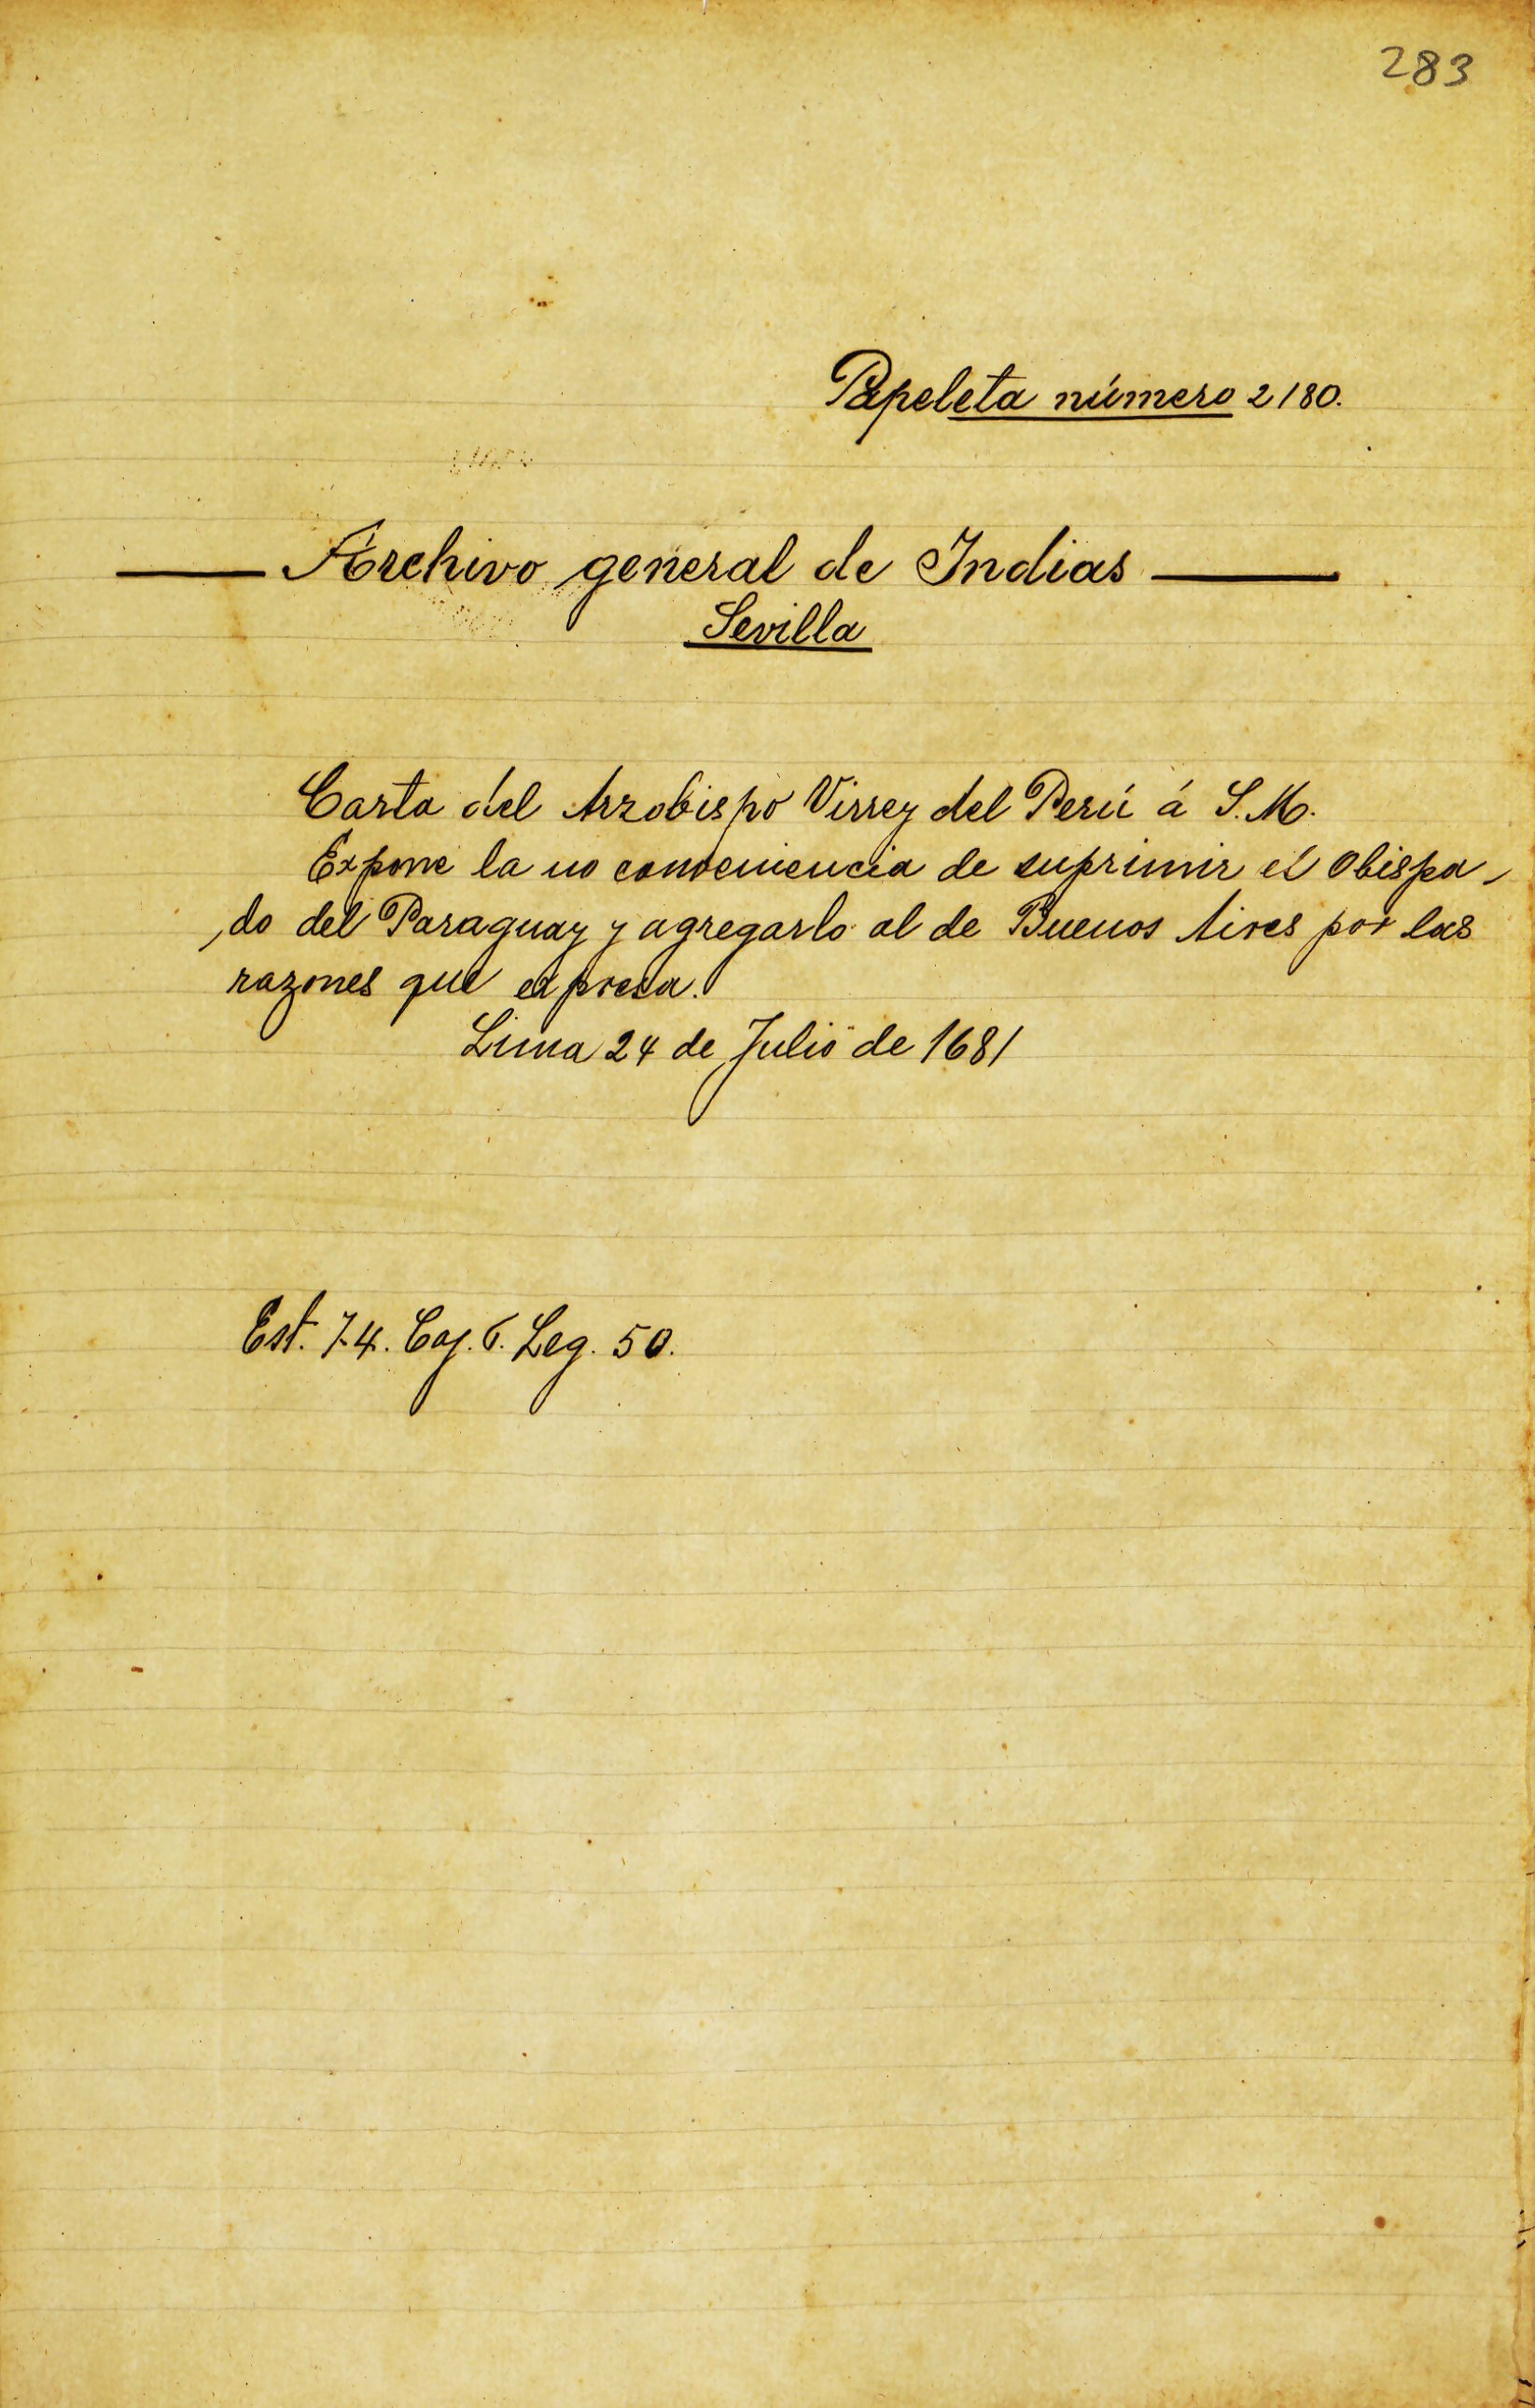 283
Papeleta número 2180.
Archivo general de Indias
Sevilla
Carta del Arzobispo Virrey del Perú á S. M.
Expone la no conveniencia de suprimir el Obispa-
-do del Paraguay y agregarlo al de Buenos Aires por las
razones que expresa.
Lima 24 de Julio de 1681
Est. 74. Caj. 6. Leg. 50.